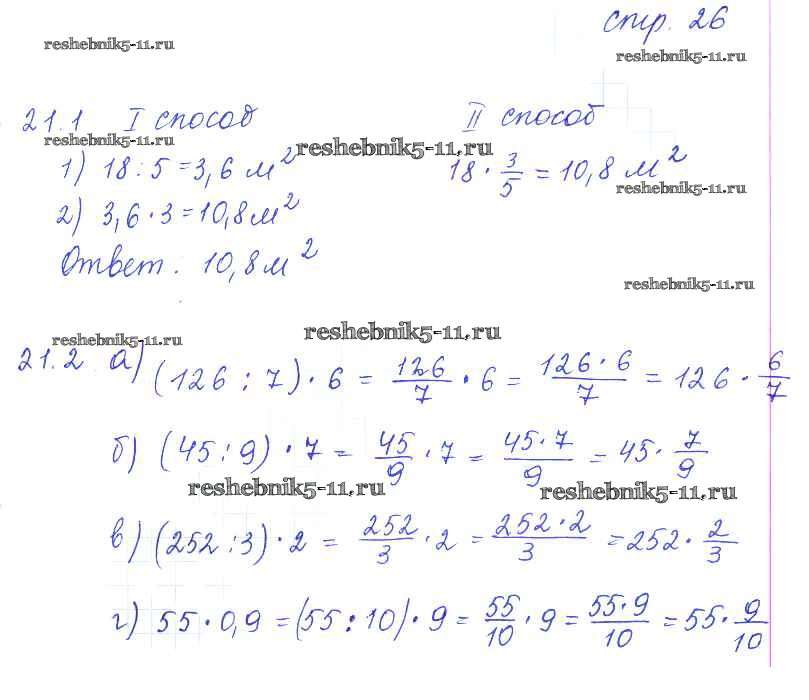 стр. 26
reshebnik5-11.ru
reshebnik5-11.ru
21.1 I способ II способ
reshebnik5-11.ru
reshebnik5-11.ru
1) 18 : 5 = 3,6 м² 18 · 3/5 = 10,8 м²
reshebnik5-11.ru
2) 3,6 · 3 = 10,8 м²
Ответ. 10,8 м²
reshebnik5-11.ru
reshebnik5-11.ru
reshebnik5-11.ru
21.2 а) (126 : 7) · 6 = 126/7 · 6 = 126 · 6/7 = 126 · 6/7
б) (45 : 9) · 7 = 45/9 · 7 = 45 · 7/9 = 45 · 7/9
reshebnik5-11.ru
reshebnik5-11.ru
в) (252 : 3) · 2 = 252/3 · 2 = 252 · 2/3 = 252 · 2/3
г) 55 · 0,9 = (55 : 10) · 9 = 55/10 · 9 = 55 · 9/10 = 55 · 9/10